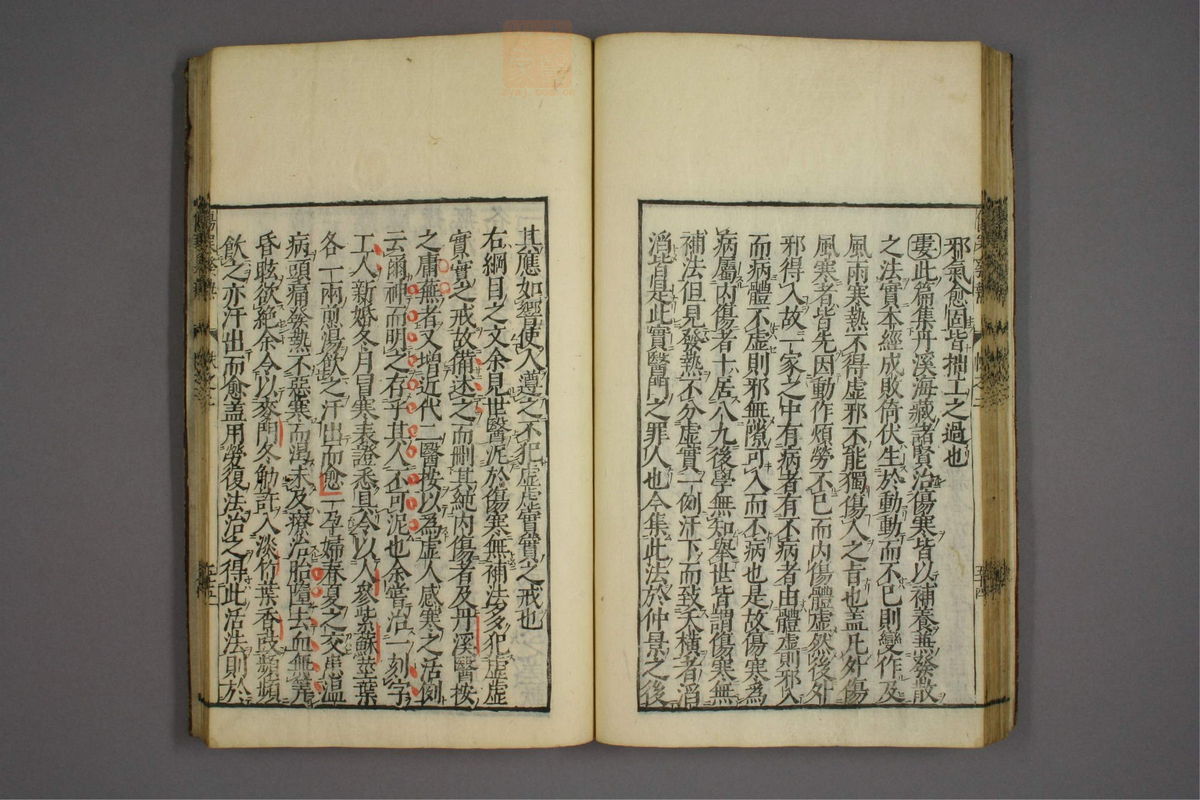 邪氣愈固皆拙工之過也
婁此篇集丹溪海藏諸賢治傷寒皆以補養兼發散
之法實本經成敗倚伏生於動動而不已則變作及
風雨寒熱不得虛邪不能獨傷人之旨也蓋凡外傷
風寒者皆先因動作煩勞不已而內傷體虛然後外
邪得入故一家之中有病者有不病者由體虛則邪入
而病體不虛則邪無隙可入而不病也是故傷寒為
病屬內傷者十居八九後學無知舉世皆謂傷寒無
補法但見發熱不分虛實一例汗下而致夭橫者滔
滔皆是此實醫門之罪人也今集此法於仲景之後
其應如響使人遵之不犯虛虛實實之戒也
右綱目之文余見世醫泥於傷寒無補法多犯虛虛
實實之戒故備述之而刪其純內傷者及丹溪醫按
之庸蕪者又增近代二醫按以為虛人感寒之活例
云爾神而明之存乎其人不可泥也余嘗治一刻字
工人新婚冬月冒寒表證悉具令以人參紫蘇莖葉
各一兩煎湯飲之汗出而愈一孕婦春夏之交患溫
病頭痛發熱不惡寒而渴未及療治胎墮去血無筭
昏眩欲絕余令以麥門冬觔許入淡竹葉香豉頻頻
飲之亦汗出而愈蓋用勞復法治之得此活法則於